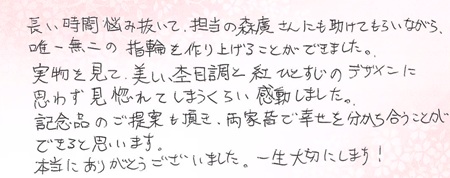 長い時間悩み抜いて、担当の森廣さんにも助けてもらいながら、
唯一無二の指輪を作り上げることができました。
実物を見て、美しい杢目調と紅ひとすじのデザインに
思わず見惚れてしまうくらい感動しました。
記念品のご提案も頂き、両家皆で幸せを分かち合うことが
できると思います。
本当にありがとうございました。一生大切にします!